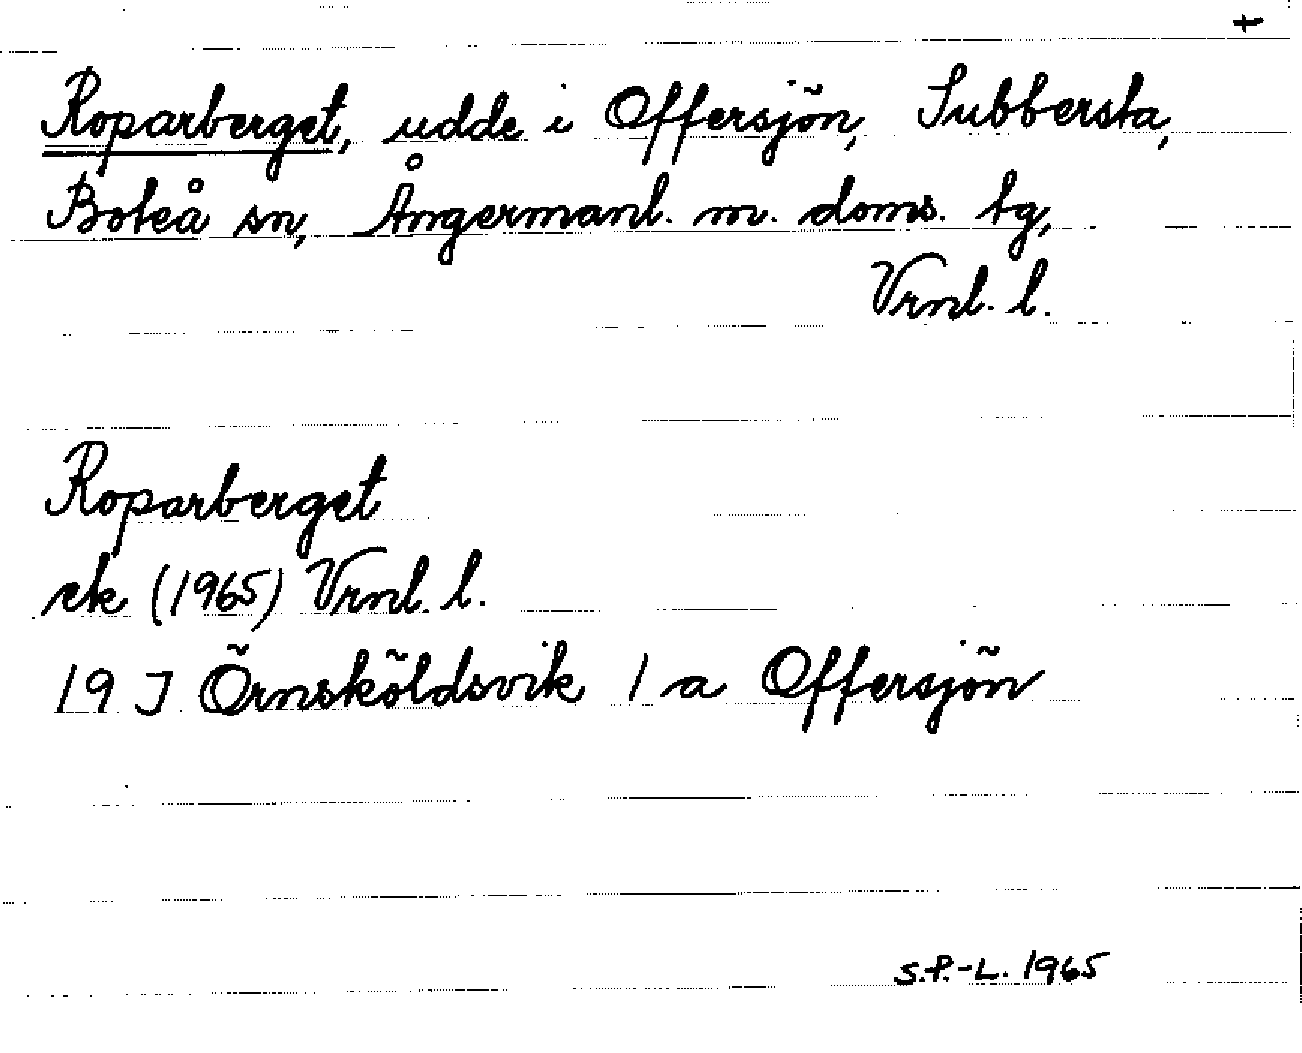 t
Roparberget, udde i Offersjön, Subbersta,
Boteå sn, Ångermanl. m. doms. tg,
Vrnl. l.
Roparberget
ek (1965) Vrnl. l.
19 J Örnsköldsvik 1 a Offersjön
S.P.-L. 1965